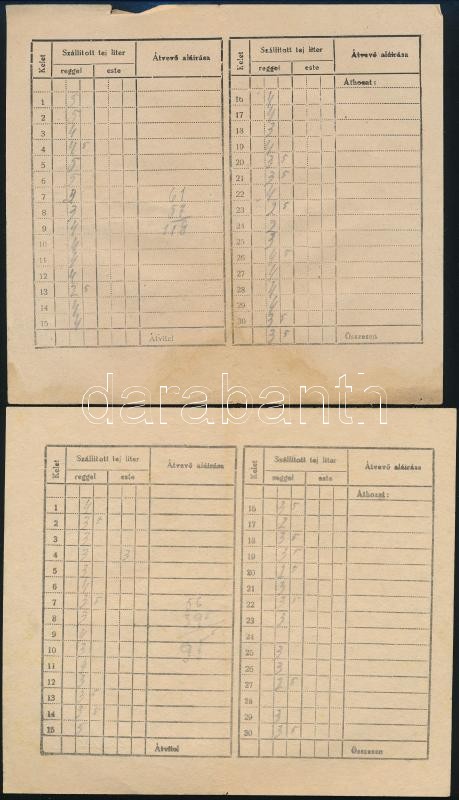 Kelet Szállitott tej liter Átvevő aláírása
reggel este
1 5
2 5
3 4
4 4 5
5 5
6 5
7 3 61
8 3 57
9 4 118
10 4
11 4
12 4
13 2 5
14 4
15 4
Átvitel
Kelet Szállitott tej liter Átvevő aláírása
reggel este
Áthozat:
16 4
17 4
18 3
19 4
20 3 5
21 3 5
22 4
23 2 5
24 2
25 3
26 4 5
27 4
28 4
29 4
30 3 5
3 5
Összesen
darabanth
Kelet Szállitott tej liter Átvevő aláírása
reggel este
1 4
2 3 5
3
4 3 3
5 3
6 4
7 2 5
8 3
9 4
10 3
11 4
12 3
13 3 5
14 3 5
15 5
Átvitel
Kelet Szállitott tej liter Átvevő aláírása
reggel este
Áthozat:
16 3 5
17 2
18 3 5
19 3 5
20 2 5
21 3
22 3 5
23 3
24
25 3
26 3
27 2 5
29 3
30 3 5
Összesen